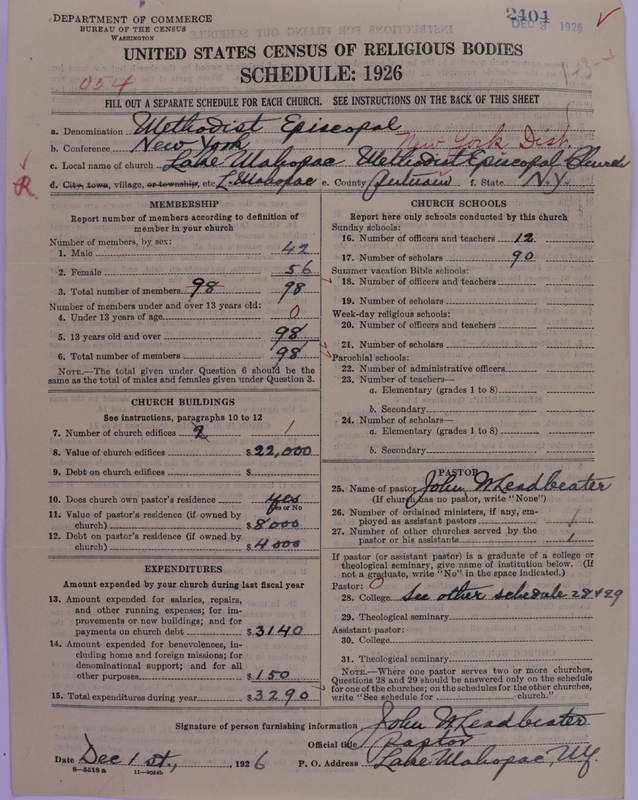 DEPARTMENT OF COMMERCE
BUREAU OF THE CENSUS
WASHINGTON
2404
DEC 3 1926
UNITED STATES CENSUS OF RELIGIOUS BODIES
SCHEDULE: 1926
054
1-3-1
FILL OUT A SEPARATE SCHEDULE FOR EACH CHURCH. SEE INSTRUCTIONS ON THE BACK OF THIS SHEET
a. Denomination Methodist Episcopal
b. Conference New York New York Dist.
c. Local name of church Lake Mahopac Methodist Episcopal Church
d. City, town, village, or township, etc L. Mahopac e. County Putnam f. State N.Y.
R
MEMBERSHIP
Report number of members according to definition of member in your church
Number of members, by sex:
1. Male 42
2. Female 56
3. Total number of members 98 98
Number of members under and over 13 years old:
4. Under 13 years of age 0
5. 13 years old and over 98
6. Total number of members 98
NOTE.—The total given under Question 6 should be the same as the total of males and females given under Question 3.
CHURCH BUILDINGS
See instructions, paragraphs 10 to 12
7. Number of church edifices 2 1
8. Value of church edifices $ 22,000
9. Debt on church edifices $
10. Does church own pastor's residence yes
Yes or No
11. Value of pastor's residence (if owned by church) $ 8000
12. Debt on pastor's residence (if owned by church) $ 4000
EXPENDITURES
Amount expended by your church during last fiscal year
13. Amount expended for salaries, repairs, and other running expenses; for improvements or new buildings; and for payments on church debt $ 3140
14. Amount expended for benevolences, including home and foreign missions; for denominational support; and for all other purposes $ 150
15. Total expenditures during year $ 3290
CHURCH SCHOOLS
Report here only schools conducted by this church
Sunday schools:
16. Number of officers and teachers 12
17. Number of scholars 90
Summer vacation Bible schools:
18. Number of officers and teachers
19. Number of scholars
Week-day religious schools:
20. Number of officers and teachers
21. Number of scholars
Parochial schools:
22. Number of administrative officers
23. Number of teachers—
a. Elementary (grades 1 to 8)
b. Secondary
24. Number of scholars—
a. Elementary (grades 1 to 8)
b. Secondary
PASTOR
25. Name of pastor John M Leadbeater
(If church has no pastor, write "None")
26. Number of ordained ministers, if any, employed as assistant pastors /
27. Number of other churches served by the pastor or his assistants 1
If pastor (or assistant pastor) is a graduate of a college or theological seminary, give name of institution below. (If not a graduate, write "No" in the space indicated.)
Pastor:
28. College See other schedule 28 & 29
29. Theological seminary
Assistant pastor:
30. College
31. Theological seminary
NOTE.—Where one pastor serves two or more churches, Questions 28 and 29 should be answered only on the schedule for one of the churches; on the schedules for the other churches, write "See schedule for church."
Signature of person furnishing information John M Leadbeater
Official title Pastor
Date Dec 1st, , 1926 P. O. Address Lake Mahopac, N.Y.
8—5518 a 11—9024b